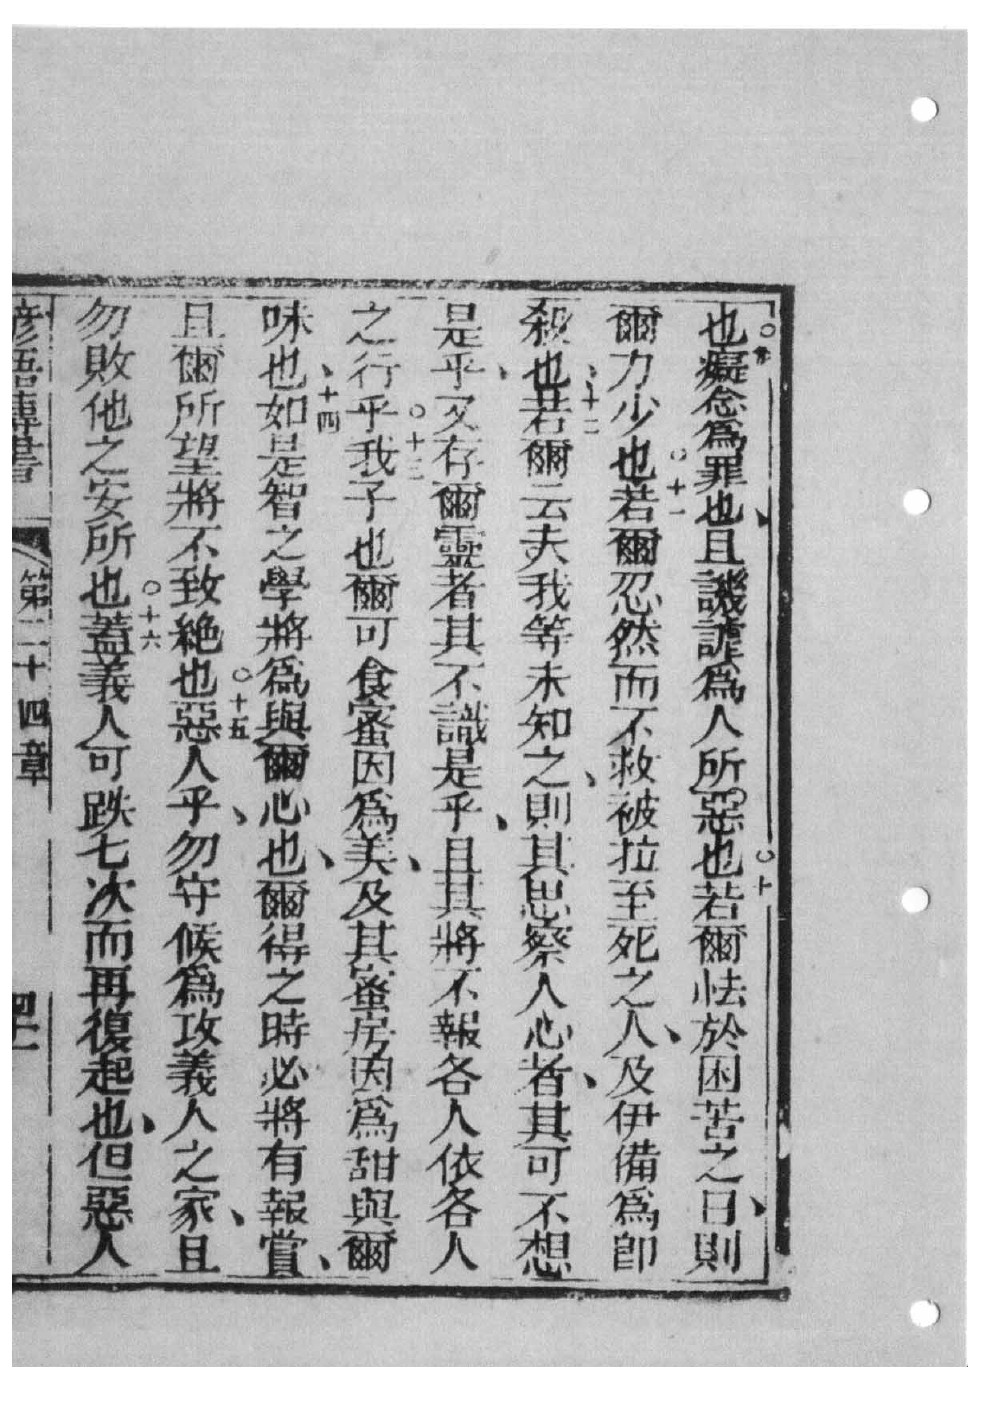 也○九癡念爲罪也、且譏謔爲人所惡也○十若爾怯於困苦之日、則
爾力少也○十一若爾忍然而不救被拉至死之人、及伊備爲即
殺也、十二若爾云夫我等未知之、則其思察人心者、其可不想
是乎、又存爾靈者其不識是乎、且其將不報各人依各人
之行乎○十三我子也爾可食蜜因爲美、及其蜜房因爲甜與爾
味也、十四如是智之學將爲與爾心也、爾得之時必將有報賞、
且爾所望將不致絶也○十五惡人乎、勿守候爲攻義人之家、且
勿敗他之安所也○十六蓋義人可跌七次而再復起也、但惡人
諺語傳書 第二十四章 四二